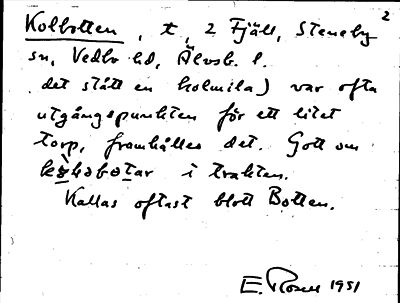 2
Kolbotten, t, 2 Fjäll, Steneby
sn, Vedbo hd, Älvsb. l.
det stått en kolmila) var ofta
utgångspunkten för ett litet
torp, framhålles det. Gott om
kò̱ḷabo̱tar i trakten.
Kallas oftast blott Botten.
E. Rosell 1951